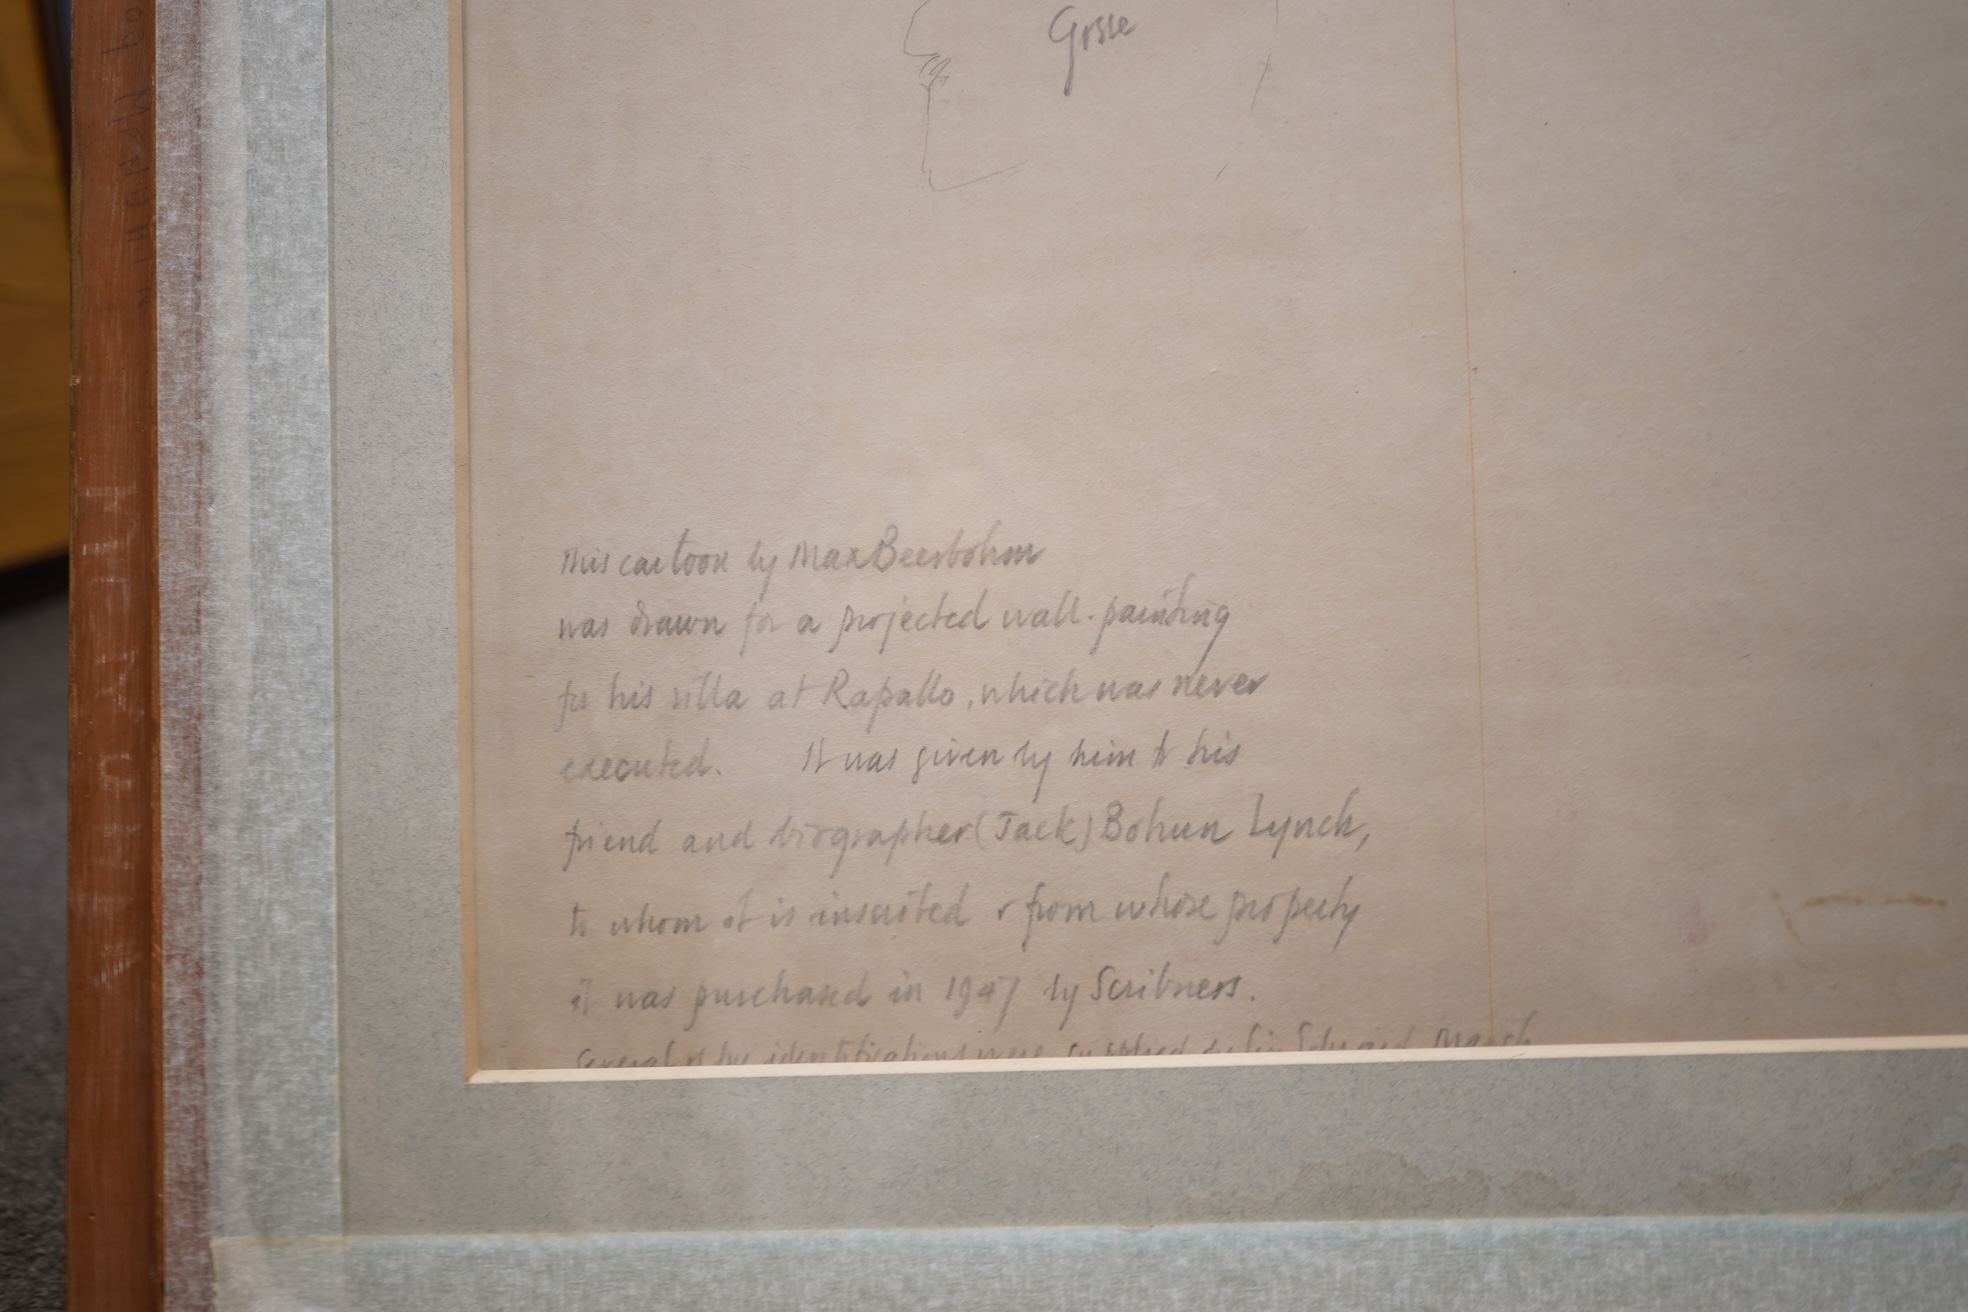 Gosse
This cartoon by Max Beerbohm
was drawn for a projected wall-painting
for his villa at Rapallo, which was never
executed. It was given by him to his
friend and biographer (Jack) Bohun Lynch,
to whom it is inscribed & from whose property
it was purchased in 1947 by Scribners.
Several of the identifications were supplied by Sir Edward Marsh